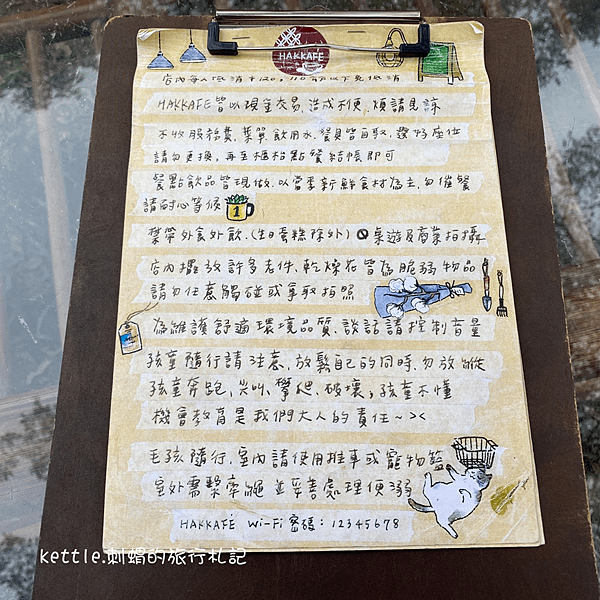 HAKKAFÉ
店內每人低消
HAKKAFE皆以現金交易,造成不便,煩請見諒
不收服務費,菜單、飲用水、餐具皆自取,選好座位
請勿更換,再至櫃枱點餐結帳即可
餐點飲品皆現做,以當季新鮮食材為主,勿催餐
請耐心等候
1
禁帶外食外飲.(生日蛋糕除外) 桌遊及商業拍攝
店內擺放許多老件、乾燥花皆為脆弱物品
請勿任意觸碰或拿取拍照
為維護舒適環境品質,談話請控制音量
孩童隨行請注意,放鬆自己的同時,勿放縱
孩童奔跑、尖叫、攀爬、破壞,孩童不懂
機會教育是我們大人的責任~><
毛孩隨行,室內請使用推車或寵物籃
室外需繫牽繩並妥善處理便溺
HAKKAFÉ Wi-Fi 密碼:12345678
kettle.刺蝟的旅行札記